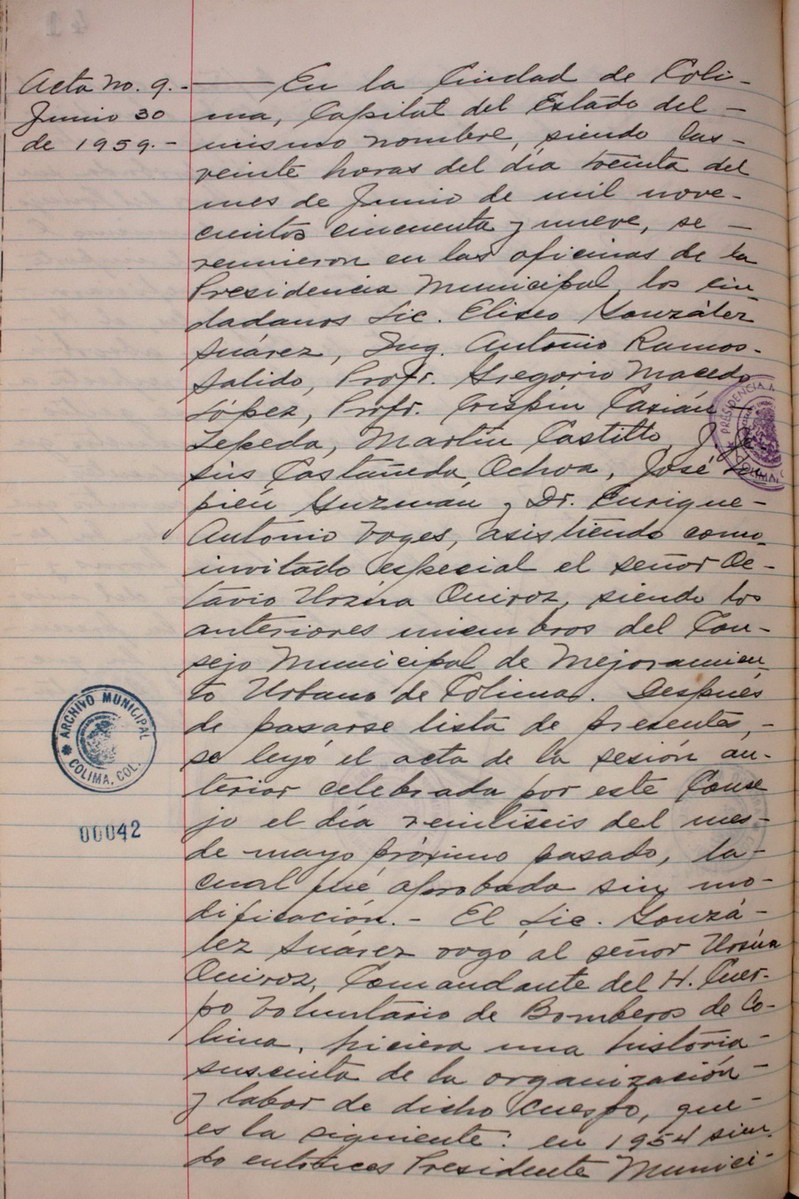 Acta No. 9.-
Junio 30
de 1959.-
En la Ciudad de Coli-
ma, Capital del Estado del-
mismo nombre, siendo las-
veinte horas del día treinta del
mes de Junio de mil nove-
cientos cincuenta y nueve, se-
reunieron en las oficinas de la
Presidencia Municipal, los ciu
dadanos Lic. Eliseo González
Suárez, Ing. Antonio Ramos-
Salido, Profr. Gregorio Macedo
López, Profr. Crispín Casián-
Zepeda, Martín Castillo, J. Je-
sús Castañeda Ochoa, José
pién Guzmán y Dr. Enrique-
Antonio Voges, asistiendo como
invitado especial el señor Oc-
tavio Urzúa Quiroz, siendo los
anteriores miembros del Con-
sejo Municipal de Mejoramien
to Urbano de Colima. Después
de pasarse lista de presentes,-
se leyó el acta de la sesión an-
terior celebrada por este Conse
jo el día veintiseis del mes-
de mayo próximo pasado, la-
cual fué aprobada sin mo-
dificación.- El Lic. Gonzá-
lez Suárez rogó al señor Urzúa
Quiroz, Comandante del H. Cuer-
po Voluntario de Bomberos de Co-
lima, hiciera una historia-
suscinta de la organización-
y labor de dicho cuerpo, que-
es la siguiente: en 1954 sien
do entonces Presidente Munici-
PRESIDENCIA M
COLIMA
ARCHIVO MUNICIPAL
COLIMA, COL.
00042